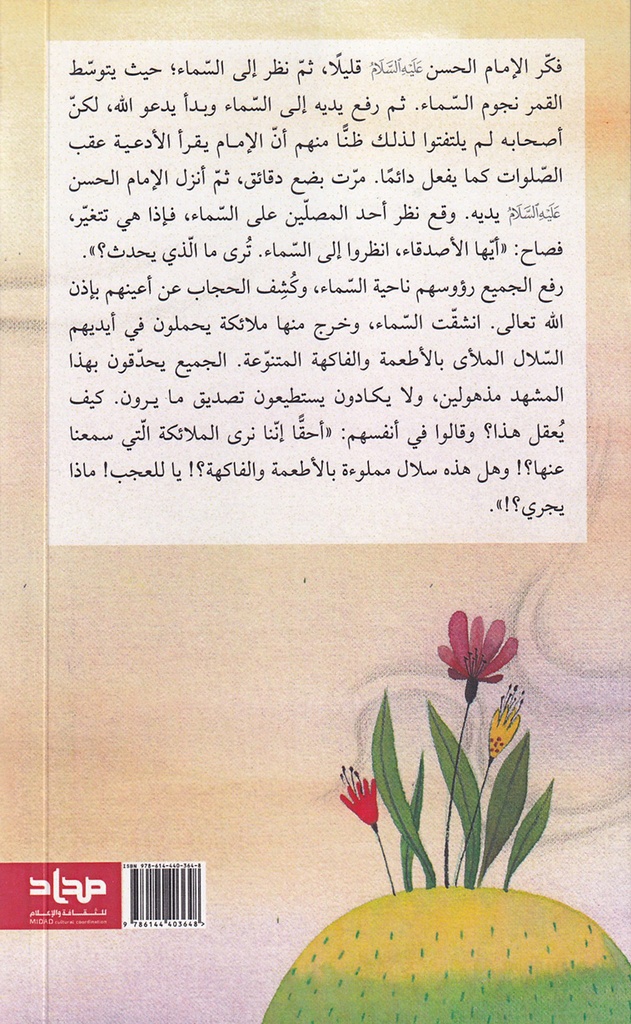 فكّر الإمام الحسن عَلَيْهِ السَّلَامُ قليلًا، ثمّ نظر إلى السّماء؛ حيث يتوسّط
القمر نجوم السّماء. ثم رفع يديه إلى السّماء وبدأ يدعو الله، لكنّ
أصحابه لم يلتفتوا لذلك ظنًّا منهم أنّ الإمام يقرأ الأدعية عقب
الصّلوات كما يفعل دائمًا. مرّت بضع دقائق، ثمّ أنزل الإمام الحسن
عَلَيْهِ السَّلَامُ يديه. وقع نظر أحد المصلّين على السّماء، فإذا هي تتغيّر،
فصاح: «أيّها الأصدقاء، انظروا إلى السّماء. تُرى ما الّذي يحدث؟».
رفع الجميع رؤوسهم ناحية السّماء، وكُشِف الحجاب عن أعينهم بإذن
الله تعالى. انشقّت السّماء، وخرج منها ملائكة يحملون في أيديهم
السّلال الملأى بالأطعمة والفاكهة المتنوّعة. الجميع يحدّقون بهذا
المشهد مذهولين، ولا يكادون يستطيعون تصديق ما يرون. كيف
يُعقل هذا؟ وقالوا في أنفسهم: «أحقًّا إنّنا نرى الملائكة الّتي سمعنا
عنها؟! وهل هذه سلال مملوءة بالأطعمة والفاكهة؟! يا للعجب! ماذا
يجري؟!».
مداد
للثقافة والإعلام
MIDAD cultural coordination
ISBN 978-614-440-364-8
9 786144 403648